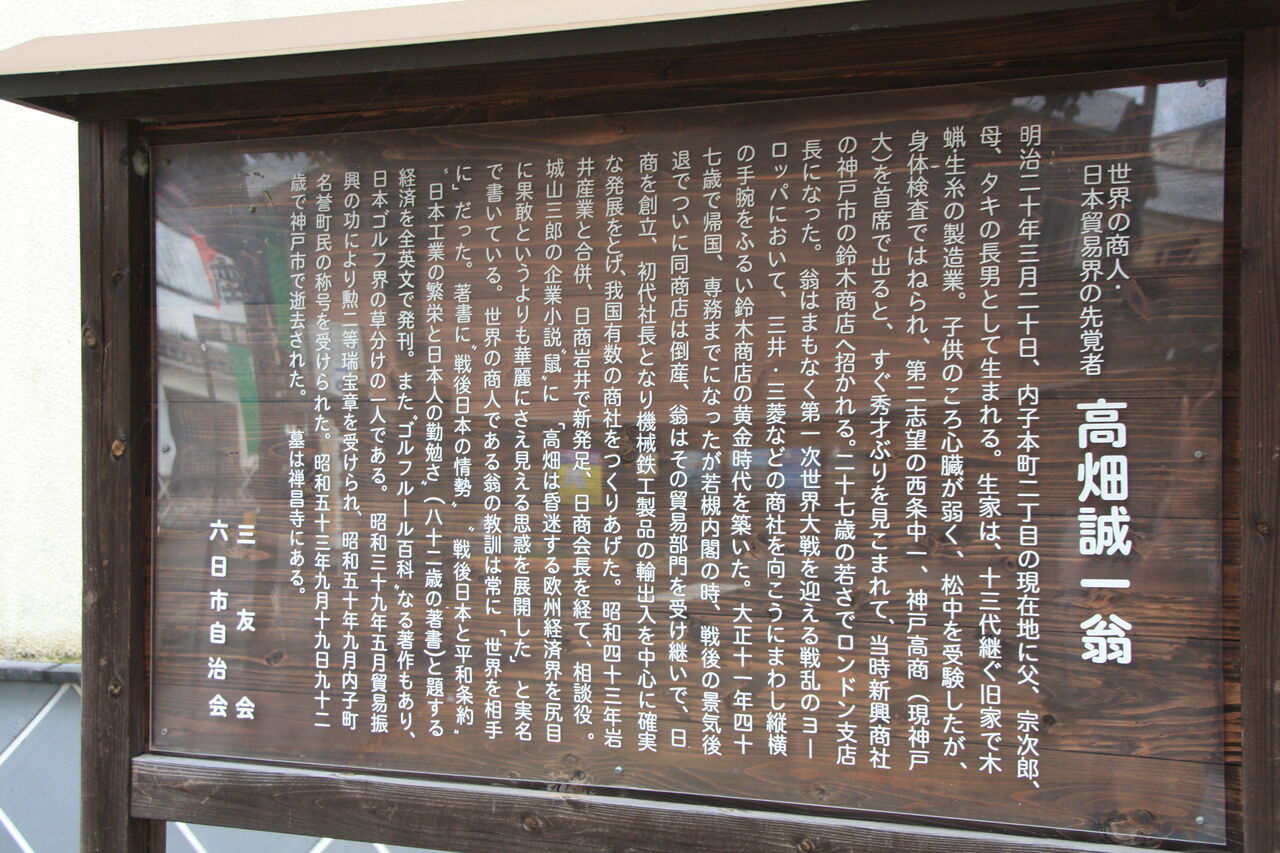 世界の商人・
日本貿易界の先覚者
高畑誠一翁
明治二十年三月二十日、内子本町二丁目の現在地に父、宗次郎、
母、タキの長男として生まれる。生家は、十三代継ぐ旧家で木
蝋・生糸の製造業。子供のころ心臓が弱く、松中を受験したが、
身体検査ではねられ、第二志望の西条中一、神戸高商（現神戸
大）を首席で出ると、すぐ秀才ぶりを見こまれて、当時新興商社
の神戸市の鈴木商店へ招かれる。二十七歳の若さでロンドン支店
長になった。翁はまもなく第一次世界大戦を迎える戦乱のヨー
ロッパにおいて、三井・三菱などの商社を向こうにまわし縦横
の手腕をふるい鈴木商店の黄金時代を築いた。大正十一年四十
七歳で帰国、専務までになったが若槻内閣の時、戦後の景気後
退でついに同商店は倒産、翁はその貿易部門を受け継いで、日
商を創立、初代社長となり機械鉄工製品の輸出入を中心に確実
な発展をとげ、我国有数の商社をつくりあげた。昭和四十三年岩
井産業と合併、日商岩井で新発足、日商会長を経て、相談役。
城山三郎の企業小説〝鼠〟に「高畑は昏迷する欧州経済界を尻目
に果敢というよりも華麗にさえ見える思惑を展開した」と実名
で書いている。世界の商人である翁の教訓は常に「世界を相手
に」だった。著書に〝戦後日本の情勢〟〝戦後日本と平和条約〟
〝日本工業の繁栄と日本人の勤勉さ〟（八十二歳の著書）と題する
経済を全英文で発刊。また〝ゴルフルール百科〟なる著作もあり、
日本ゴルフ界の草分けの一人である。昭和三十九年五月貿易振
興の功により勲二等瑞宝章を受けられ、昭和五十年九月内子町
名誉町民の称号を受けられた。昭和五十三年九月十九日九十二
歳で神戸市で逝去された。墓は禅昌寺にある。
三友会
六日市自治会